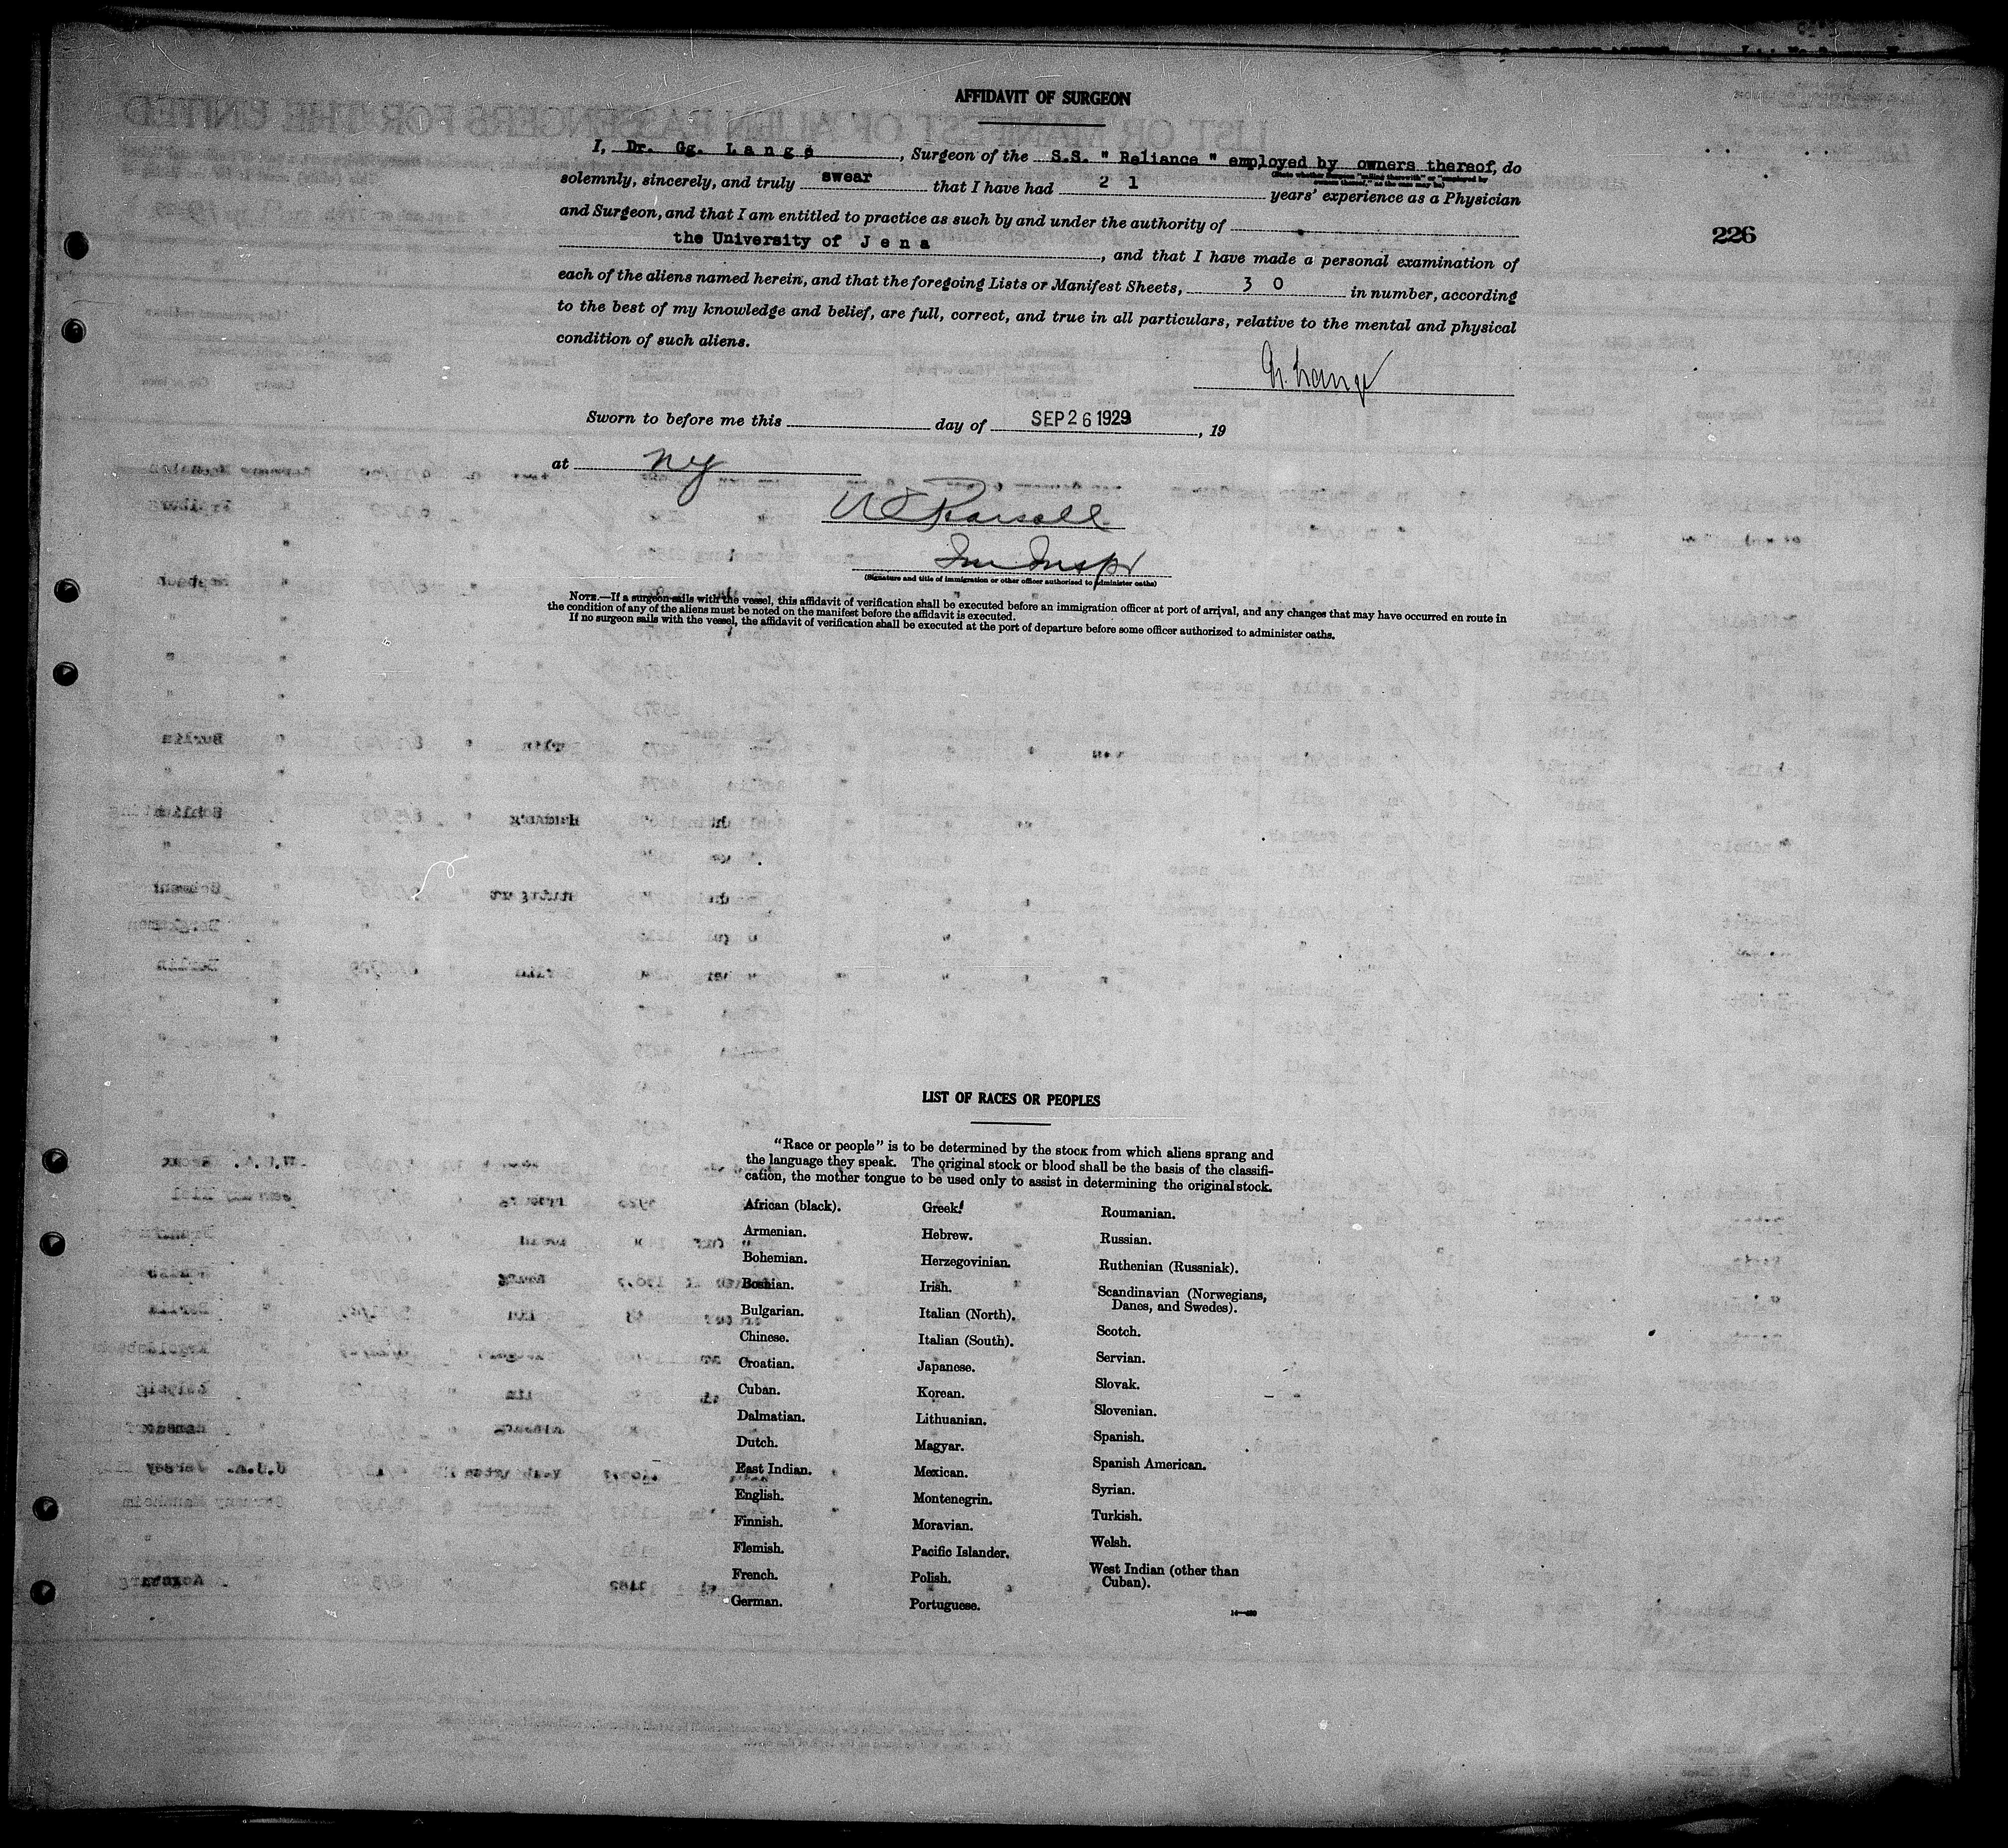 AFFIDAVIT OF SURGEON
I, Dr. Gg. Lange, Surgeon of the S.S. " Reliance " employed by owners thereof, do
(State whether Surgeon "sailing therewith" or "employed by
owners thereof," as the case may be)
solemnly, sincerely, and truly swear that I have had 2 1 years' experience as a Physician
and Surgeon, and that I am entitled to practice as such by and under the authority of
the University of Jena, and that I have made a personal examination of
226
each of the aliens named herein, and that the foregoing Lists or Manifest Sheets, 3 0 in number, according
to the best of my knowledge and belief, are full, correct, and true in all particulars, relative to the mental and physical
condition of such aliens.
Lange
Sworn to before me this day of SEP 26 1929, 19
at NY
Imm Inspr
(Signature and title of immigration or other officer authorized to administer oaths)
NOTE.—If a surgeon sails with the vessel, this affidavit of verification shall be executed before an immigration officer at port of arrival, and any changes that may have occurred en route in
the condition of any of the aliens must be noted on the manifest before the affidavit is executed.
If no surgeon sails with the vessel, the affidavit of verification shall be executed at the port of departure before some officer authorized to administer oaths.
LIST OF RACES OR PEOPLES
"Race or people" is to be determined by the stock from which aliens sprang and
the language they speak. The original stock or blood shall be the basis of the classifi-
cation, the mother tongue to be used only to assist in determining the original stock.
African (black).
Armenian.
Bohemian.
Bosnian.
Bulgarian.
Chinese.
Croatian.
Cuban.
Dalmatian.
Dutch.
East Indian.
English.
Finnish.
Flemish.
French.
German.
Greek.
Hebrew.
Herzegovinian.
Irish.
Italian (North).
Italian (South).
Japanese.
Korean.
Lithuanian.
Magyar.
Mexican.
Montenegrin.
Moravian.
Pacific Islander.
Polish.
Portuguese.
Roumanian.
Russian.
Ruthenian (Russniak).
Scandinavian (Norwegians,
Danes, and Swedes).
Scotch.
Servian.
Slovak.
Slovenian.
Spanish.
Spanish American.
Syrian.
Turkish.
Welsh.
West Indian (other than
Cuban).